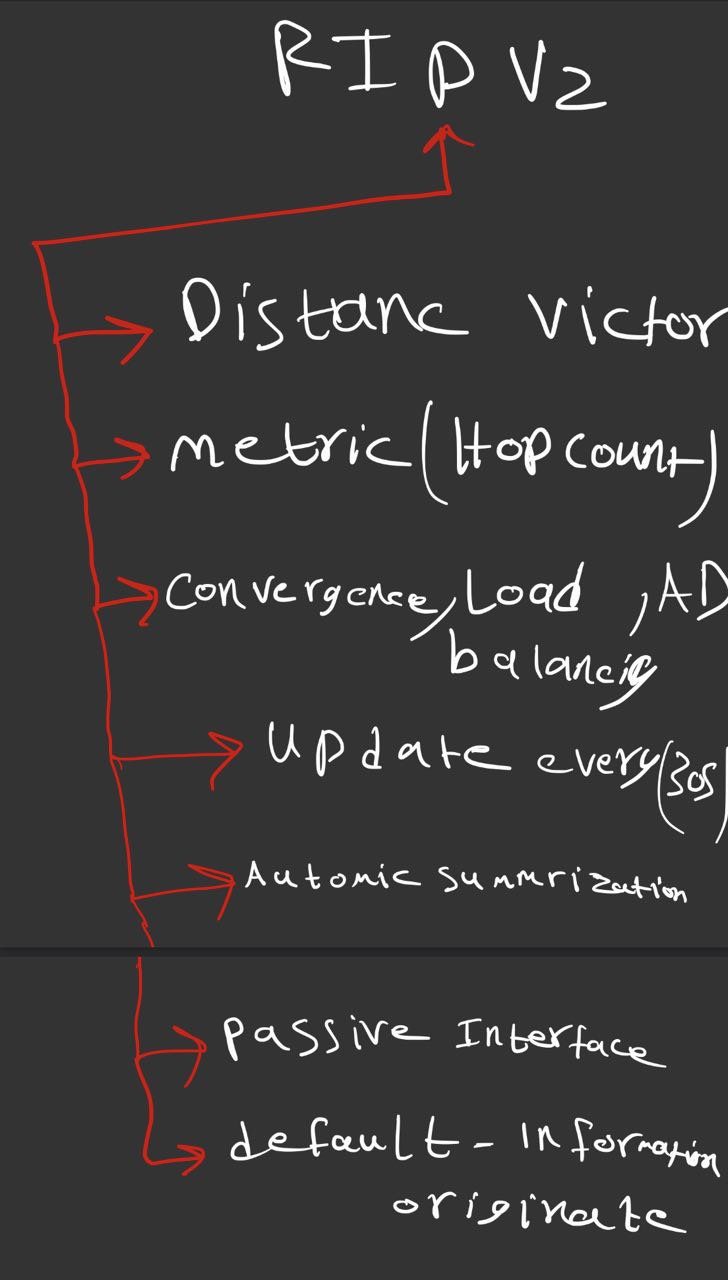 RIP V2
Distanc victor
metric(Hop count)
Convergence, Load , AD
balancig
Update every(30s)
Automic summrization
passive Interface
default - Information
originate